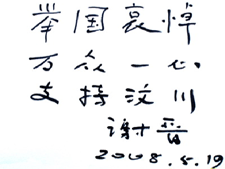 举国哀悼
万众一心
支持汶川
2008.5.19